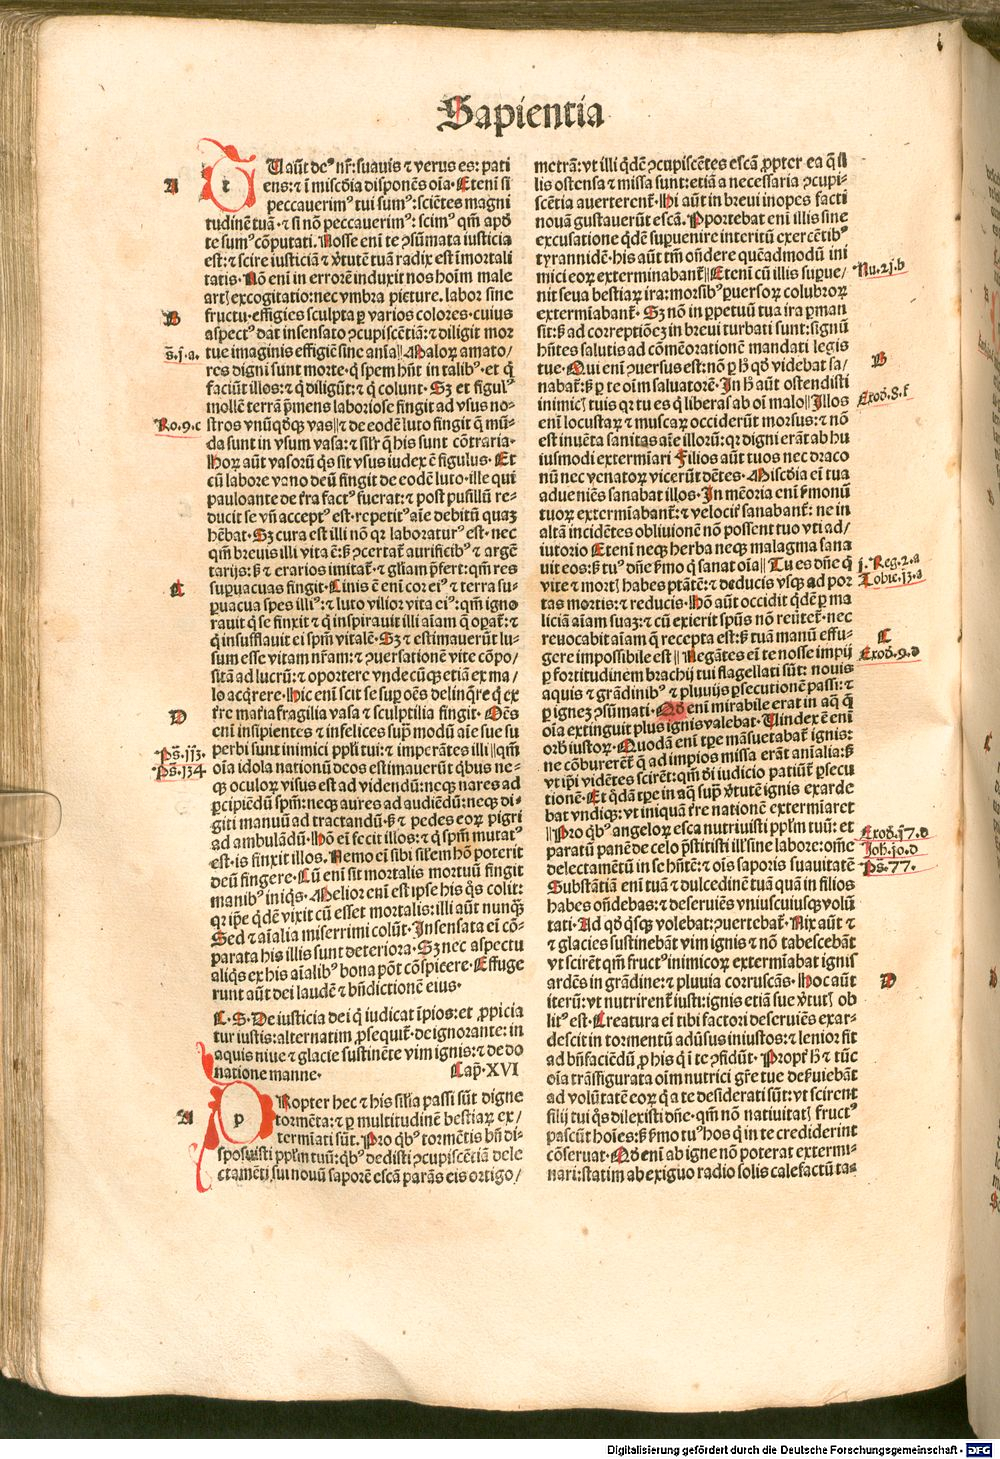 Sapientia
TU aūt de⁹ nr̄: suauis ⁊ verus es: pati
A
ens: ⁊ ī mīscd̓ia disponēs oīa. Etenī si
peccauerim⁹ tui sum⁹: sciētes magni
tudinē tuā. ⁊ si nō peccauerim⁹: scim⁹ qm̄ apd̓
te sum⁹ cōputati. Nosse enī te ↄsūmata iusticia
est: ⁊ scire iusticiā ⁊ v̓tutē tuā radix est īmortali
tatis. Nō enī in errorē induxit nos hoīm male
artꝭ excogitatio: nec vmbra picture. labor sine
B
fructu. effigies sculpta ꝑ varios colores. cuius
aspect⁹ dat insensato ↄcupiscētiā: ⁊ diligit mor
s̄.j.a.
tue imaginis effigiē sine aīa|| Maloꝝ amato/
res digni sunt morte. q̇ spem hn̄t in talib⁹. et q̇
faciūt illos: ⁊ q̇ diligūt: ⁊ q̇ colunt. Sꝫ et figul⁹
mollē terrā p̄mens laboriose fingit ad vsus no-
Ro.9.c
stros vnūqd̓qꝫ vas|| ⁊ de eodē luto fingit q̄ mū-
da sunt in vsum vasa: ⁊ silr̓ q̄ his sunt cōtraria.
Hoꝝ aūt vasorū q̇s sit vsus iudex ē figulus. Et
cū labore vano deū fingit de eodē luto. ille qui
pauloante de t̓ra fact⁹ fuerat: ⁊ post pusillū re-
ducit se vn̄ accept⁹ est. repetit⁹ aīe debitū quaꝫ
hēbat. Sꝫ cura est illi nō qꝛ laboratur⁹ est. nec
qm̄ breuis illi vita ē: sꝫ ↄcertat̄ aurificib⁹ ⁊ argē
tarijs: sꝫ ⁊ erarios imitat̄. ⁊ gliam p̄fert: qm̄ res
C
suꝑuacuas fingit. Cinis ē enī cor ei⁹ ⁊ terra su-
ꝑuacua spes illi⁹: ⁊ luto vilior vita ei⁹: qm̄ igno
rauit q̇ se finxit ⁊ q̇ inspirauit illi aīam q̄ oꝑat̄: ⁊
q̇ insufflauit ei spm̄ vitalē. Sꝫ ⁊ estimauerūt lu-
sum esse vitam nr̄am: ⁊ ↄuersationē vite cōpo/
sitā ad lucrū: ⁊ oportere vndecūqꝫ etiā ex ma/
lo acq̇rere. Hic enī scit se suꝑ oēs delinq̄re q̇ ex
D
t̓re mat̓ia fragilia vasa ⁊ sculptilia fingit. Oēs
enī insipientes ⁊ infelices sup̄ modū aīe sue su
Ps̄.113.
perbi sunt inimici ppl̓i tui: ⁊ imperātes illi|| qm̄
Ps̄.134.
oīa idola nationū deos estimauerūt q̇bus ne-
qꝫ oculoꝝ visus est ad videndū: neqꝫ nares ad
ꝑcipiēdū spm̄: neqꝫ aures ad audiēdū: neqꝫ di-
giti manuū ad tractandū. sꝫ ⁊ pedes eoꝝ pigri
ad ambulādū. Hō eī fecit illos: ⁊ q̇ spm̄ mutat⁹
est. is finxit illos. Nemo eī sibi silem hō poterit
deū fingere. Cū enī sit mortalis mortuū fingit
manib⁹ iniq̇s. Melior enī est ipse his q̇s colit:
qꝛ ip̄e q̇dē vixit cū esset mortalis: illi aūt nunqꝫ
Sed ⁊ aīalia miserrimi colūt. Insensata eī cō-
parata his illis sunt deteriora. Sꝫ nec aspectu
aliq̇s ex his aīalib⁹ bona pōt cōspicere. Effuge
runt aūt dei laudē ⁊ bn̄dictionē eius.
C. S. De iusticia dei q̇ iudicat īpios: et ꝓpicia
tur iustis: alternatim ꝓsequit̄. de ignorante: in
aquis niue ⁊ glacie sustinēte vim ignis: ⁊ de do
natione manne. Cap̄. XVI
A
PRopter hec ⁊ his sīlia passi sūt digne
tormēta: ⁊ ꝑ multitudinē bestiaꝝ ex/
termīati sūt. Pro q̇b⁹ tormētis bn̄ di-
sposuisti ppl̓m tuū: q̇b⁹ dedisti ↄcupiscētiā dele
ctamēti sui nouū saporē escā parās eis ortigo/
metrā: vt illi q̇dē ↄcupiscētes escā ꝓpter ea q̄ il
lis ostensa ⁊ missa sunt: etiā a necessaria ↄcupi-
scētia auerterent̄. Hi aūt in breui inopes facti
nouā gustauerūt escā. Oportebat enī illis sine
excusatione q̇dē suꝑuenire interitū exercētib⁹
tyrannidē. his aūt tm̄ on̄dere quēadmodū ini
Nu.21.b
mici eoꝝ exterminabant̄|| Etenī cū illis suꝑue/
nit seua bestiaꝝ ira: morsib⁹ ꝑuersoꝝ colubroꝝ
extermīabant̄. Sꝫ nō in ꝑpetuū tua ira ꝑman
sit: sꝫ ad correptiōeꝫ in breui turbati sunt: signū
hn̄tes salutis ad cōmēorationē mandati legis
B
tue. Qui enī ↄuersus est: nō ꝑ hꝫ qd̓ videbat sa/
nabat̄: sꝫ ꝑ te oīm saluatorē. In hꝫ aūt ostendisti
Exod̓.8.f
inimicꝭ tuis qꝛ tu es q̇ liberas ab oī malo|| Illos
enī locustaꝝ ⁊ muscaꝝ occiderūt morsus: ⁊ nō
est inuēta sanitas aīe illorū: qꝛ digni erāt ab hu
iusmodi extermīari Filios aūt tuos nec draco
nū nec venatoꝝ vicerūt dētes. Miscd̓ia eī tua
adueniēs sanabat illos. In mēoria enī s̓monū
tuoꝝ extermīabant̄: ⁊ velocit̓ sanabant̄: ne in
altā incidētes obliuionē nō possent tuo vti ad/
iutorio Etenī neqꝫ herba neqꝫ malagma sana
j.Reg.2.a
uit eos: sꝫ tu⁹ dn̄e s̓mo q̇ sanat oīa|| Tu es dn̄e q̇
Tobie.13.a
vite ⁊ mortꝭ habes ptātē: ⁊ deducis vsqꝫ ad por
tas mortis: ⁊ reducis. Hō aūt occidit q̇dē ꝑ ma
liciā aīam suaꝫ: ⁊ cū exierit sp̄us nō reūtet̄. nec
C
reuocabit aīam q̄ recepta est: sꝫ tuā manū effu-
Exod̓.9.d
gere impossibile est|| Negātes eī te nosse impij
ꝑ fortitudinem brachij tui flagellati sūt: nouis
aquis ⁊ grādinib⁹ ⁊ pluuijs ꝑsecutionē passi: ⁊
ꝑ igneꝫ ↄsūmati. Qd̓ enī mirabile erat in aq̄ q̄
oīa extinguit plus ignis valebat. Uindex ē enī
orb̓ iustoꝝ. Quodā enī tꝑe māsuetabat̄ ignis:
ne cōbureret̄ q̄ ad impios missa erāt aīalia: sꝫ
vt ip̄i vidētes scirēt: qm̄ d̓i iudicio patiūt̄ ꝑsecu
tionē. Et q̇dā tꝑe in aq̄ sup̄ v̓tutē ignis exarde
bat vndiqꝫ: vt iniquā t̓re nationē extermīaret
Exod̓.17.d
||Pro q̇b⁹ angeloꝝ esca nutriuisti ppl̓m tuū: et
Joh.10.d
paratū panē de celo p̄stitisti ill̓ sine labore: om̄e
Ps̄.77.
delectamētū in se hn̄tē: ⁊ oīs saporis suauitatē
Substātiā enī tuā ⁊ dulcedinē tuā quā in filios
habes on̄debas: ⁊ deseruiēs vniuscuiusqꝫ volū
tati. Ad qd̓ q̇sqꝫ volebat: ↄuertebat̄. Nix aūt ⁊
⁊ glacies sustinebāt vim ignis ⁊ nō tabescebāt
vt scirēt qm̄ fruct⁹ inimicoꝝ extermīabat ignis
D
ardēs in grādine: ⁊ pluuia corruscās. Hoc aūt
iterū: vt nutrirent̄ iusti: ignis etiā sue v̓tutꝭ ob
lit⁹ est. Creatura eī tibi factori deseruiēs exar-
descit in tormentū aduƨus iniustos: ⁊ lenior fit
ad bn̄faciēdū ꝓ his q̇ ī te ↄfidūt. Propt̓ hꝫ ⁊ tūc
oīa trāsfigurata oīm nutrici gr̄e tue des̓uiebāt
ad volūtatē eoꝝ q̇ a te desiderati sūt: vt scirent
filij tui q̇s dilexisti dn̄e. qm̄ nō natiuitatꝭ fruct⁹
pascūt hoīes: sꝫ s̓mo tu⁹ hos q̇ in te crediderint
cōseruat. Qd̓ enī ab igne nō poterat extermi-
nari: statim ab exiguo radio solis calefactū ta-
Digitalisierung gefördert durch die Deutsche Forschungsgemeinschaft - DFG